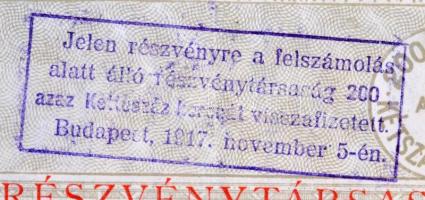 Jelen részvényre a felszámolás
alatt álló részvénytársaság 200
azaz Kettőszáz koronát visszafizetett.
Budapest, 1917. november 5-én.
RÉSZVÉNYTÁRSAS